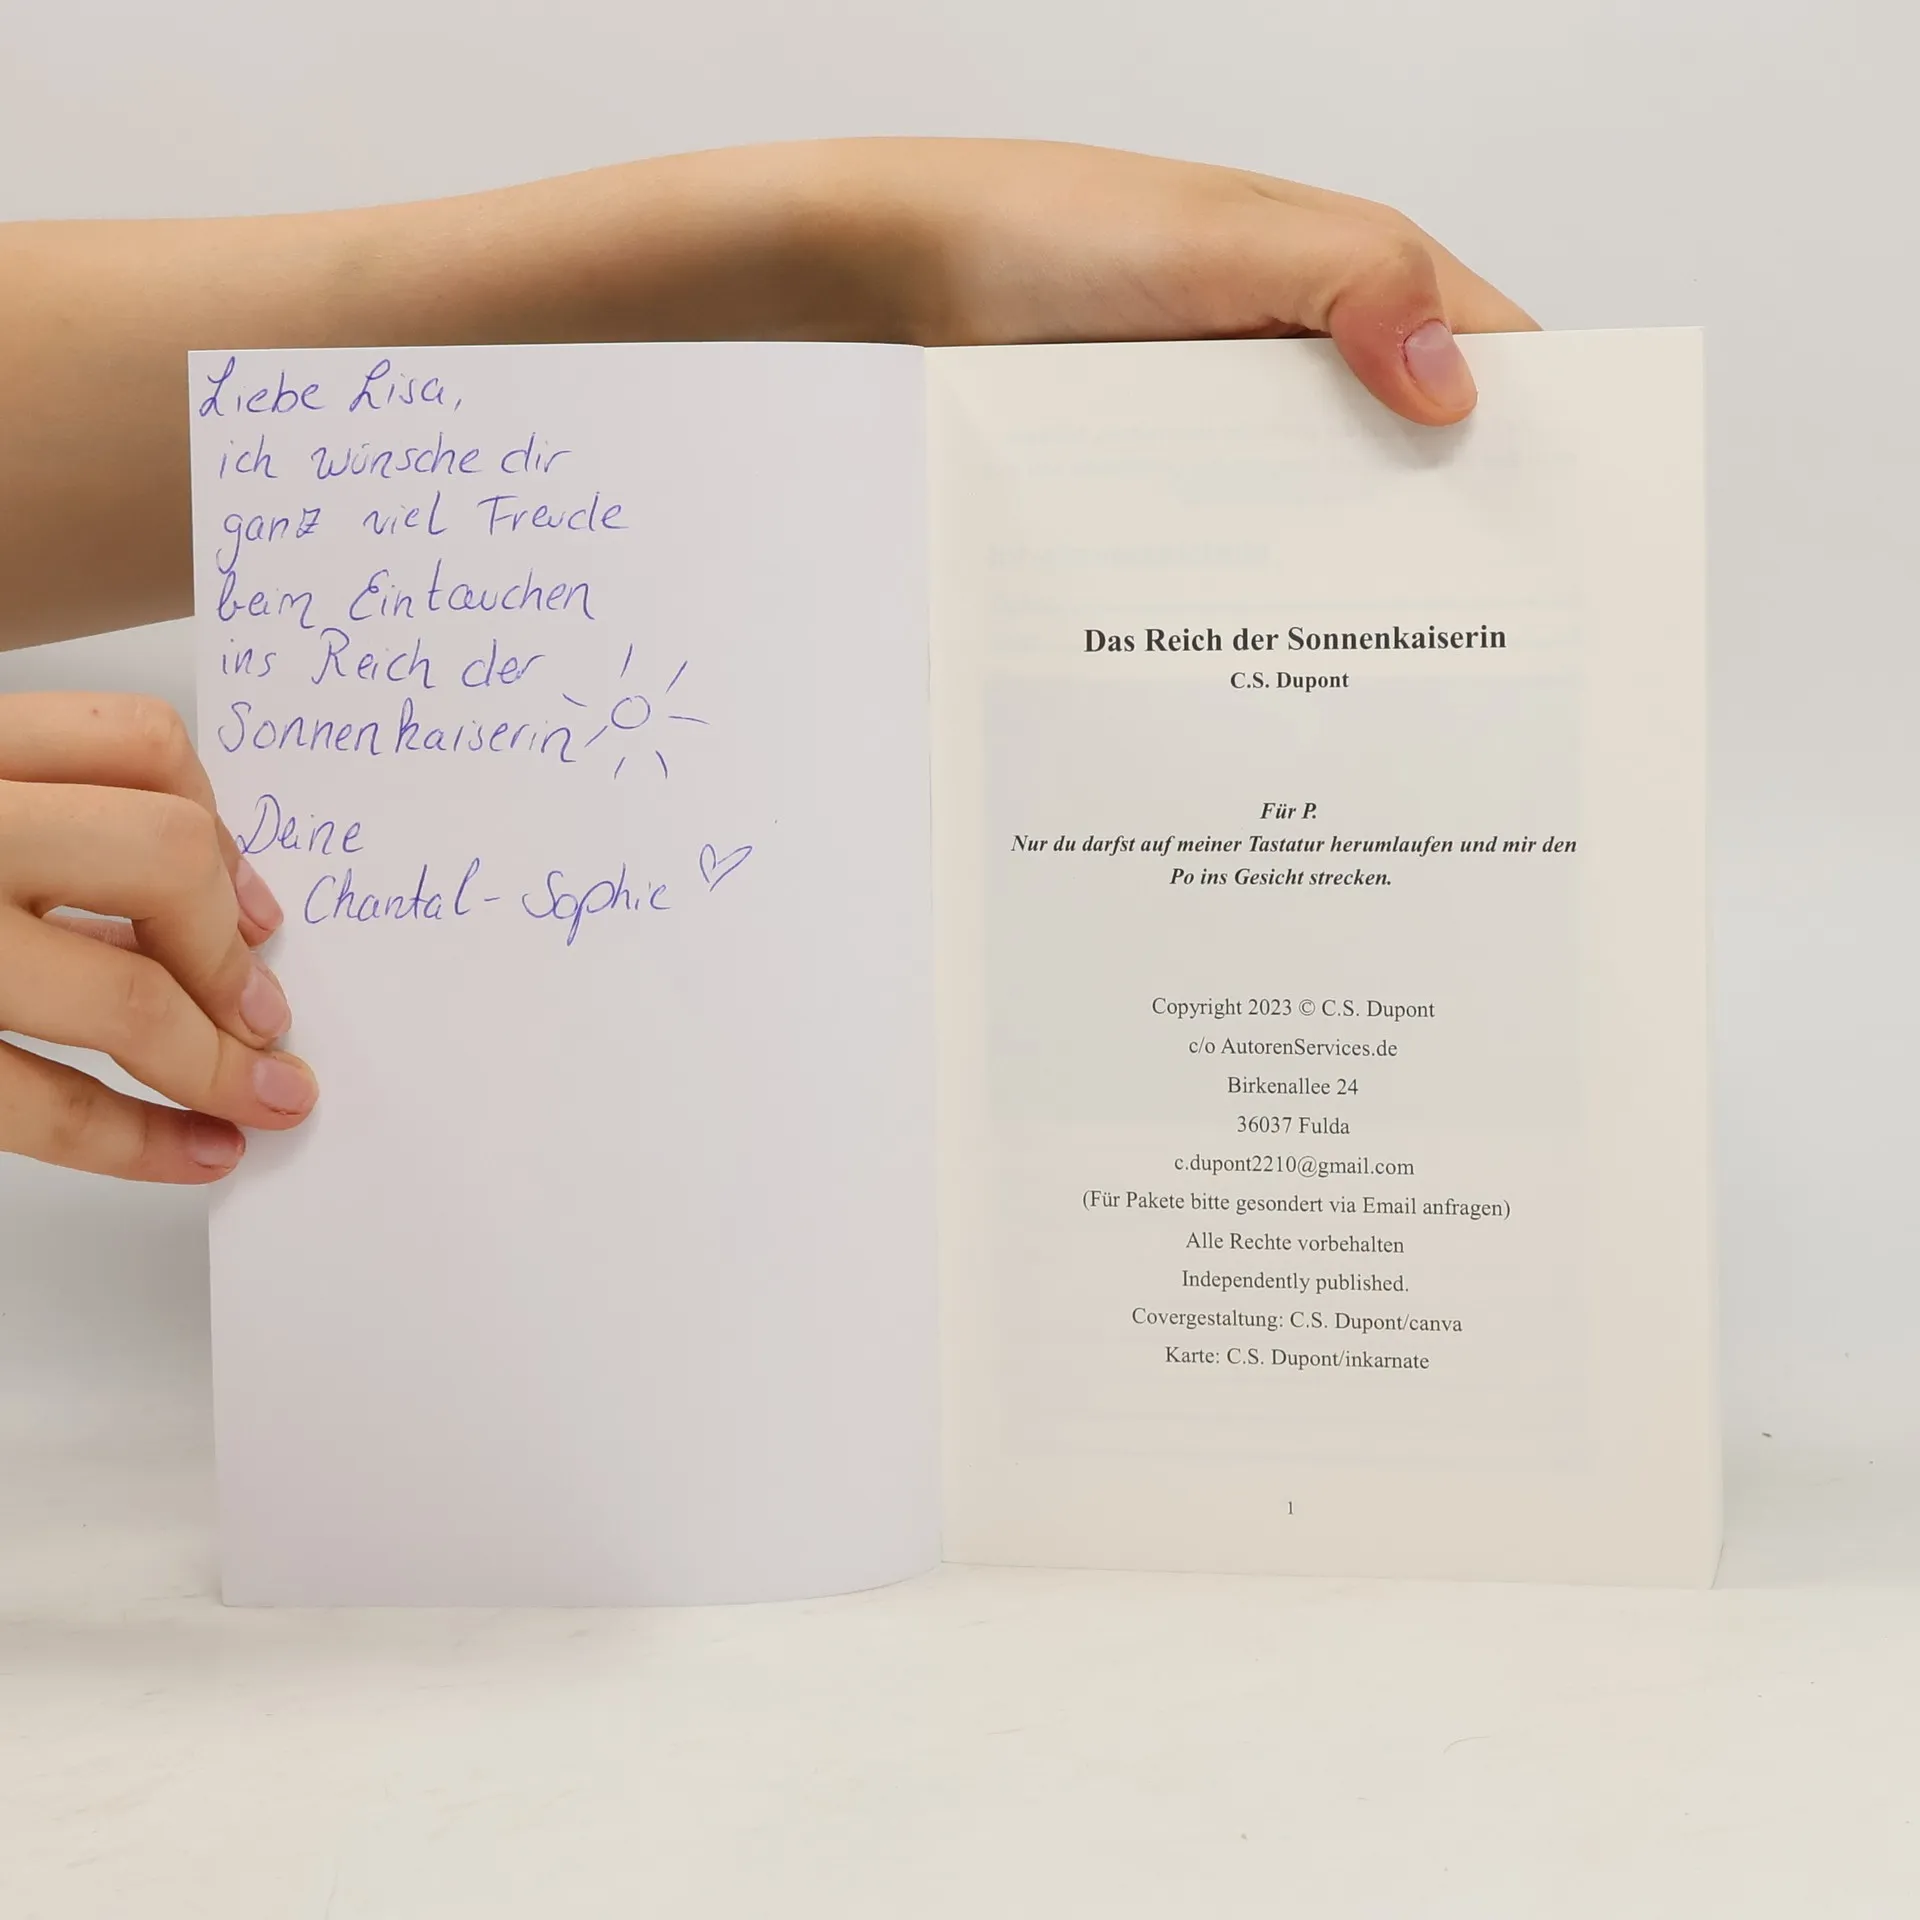 Liebe Lisa,
ich wünsche dir
ganz viel Freude
beim Eintauchen
ins Reich der
Sonnenkaiserin
Deine
Chantal-Sophie
Das Reich der Sonnenkaiserin
C.S. Dupont
Für P.
Nur du darfst auf meiner Tastatur herumlaufen und mir den
Po ins Gesicht strecken.
Copyright 2023 © C.S. Dupont
c/o AutorenServices.de
Birkenallee 24
36037 Fulda
c.dupont2210@gmail.com
(Für Pakete bitte gesondert via Email anfragen)
Alle Rechte vorbehalten
Independently published.
Covergestaltung: C.S. Dupont/canva
Karte: C.S. Dupont/inkarnate
1